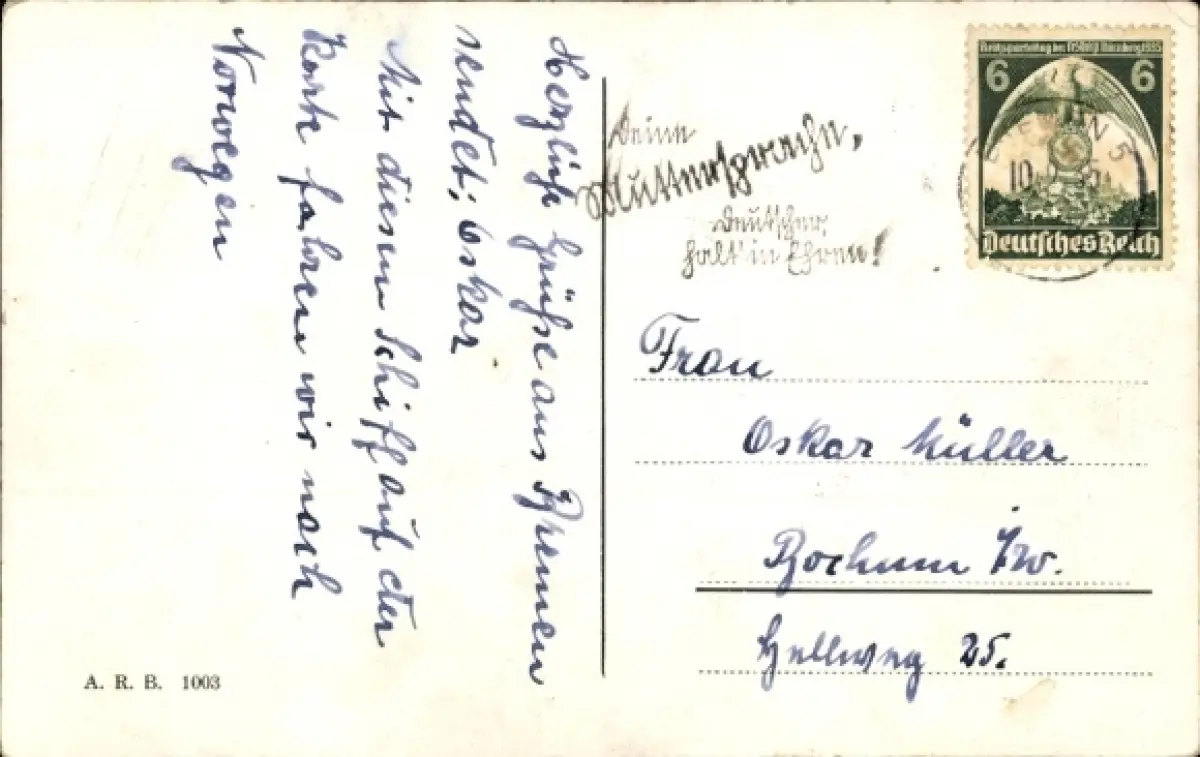 Herzliche Grüße aus Bremen
sendet: Oskar
Mit diesem Schiff auf der
Karte fahren wir nach
Norwegen
A. R. B. 1003
Deine
Muttersprache,
Deutscher,
halt' in Ehren!
Reichsparteitag der NSDAP Nürnberg 1935
6 6
Deutsches Reich
10
Frau
Oskar Müller
Bochum
Hellweg 25.